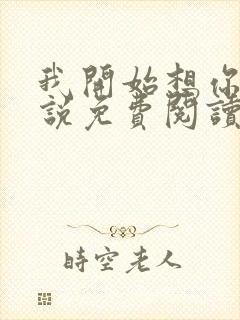 我開始想你
說免費閱讀
時空老人